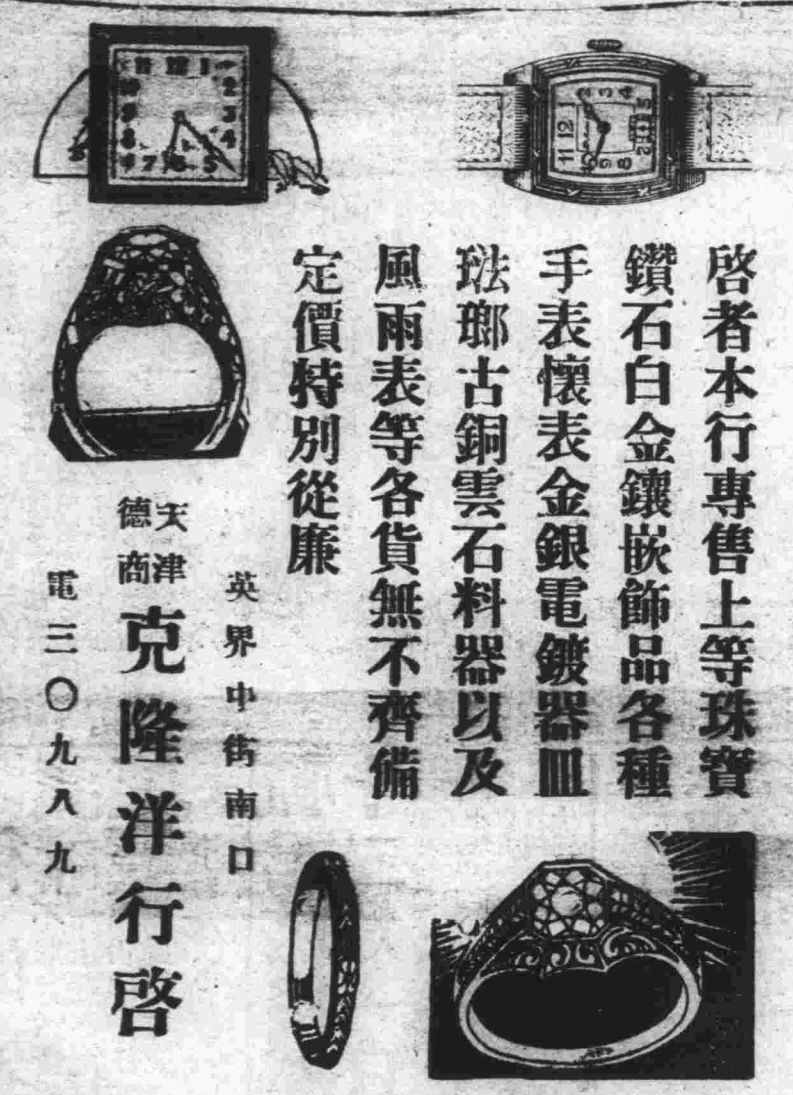 啓者本行專售上等珠寶
鑽石白金鑲嵌飾品各種
手表懷表金銀電鍍器皿
琺瑯古銅雲石料器以及
風雨表等各貨無不齊備
定價特別從廉
英界中街南口
天津
德商
克隆洋行啓
電三〇九八九